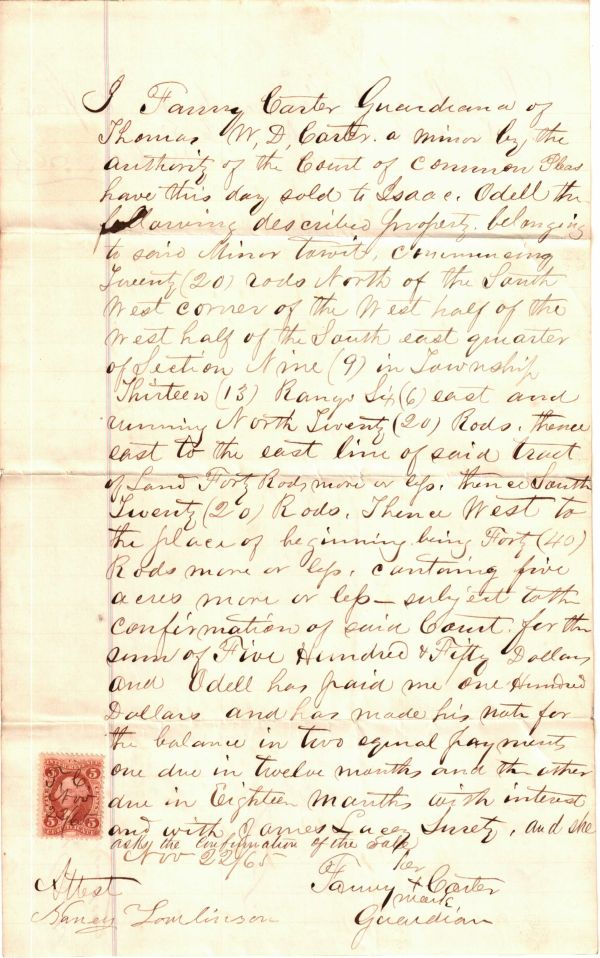 I Fanny Carter Guardiana of
Thomas W, D, Carter. a minor by the
authority of the Court of Common Pleas
have this day sold to Isaac. Odell the
following described property. belonging
to said Minor towit, commencing
Twenty (20) rods North of the South
West corner of the West half of the
West half of the South east quarter
of Section Nine (9) in Township
Thirteen (13) Range Six (6) east and
running North Twenty (20) Rods. thence
east to the east line of said tract
of Land Forty Rods more or less, thence South
Twenty (20) Rods. Thence West to
the place of beginning. being Forty (40)
Rods more or less, containg five
acres more or less – subject to the
confirmation of said Court. for the
sum of Five Hundred & Fifty Dollars
and Odell has paid me one Hundred
Dollars and has made his note for
the balance in two equal payments
one due in twelve months and the other
due in Eighteen months with interest
and with James Lacey Surety, and she
asks the confirmation of the sale
Nov 22/65
her
Attest Fanny + Carter
mark
Nancy Tomlinson Guardian
5 5
Nov